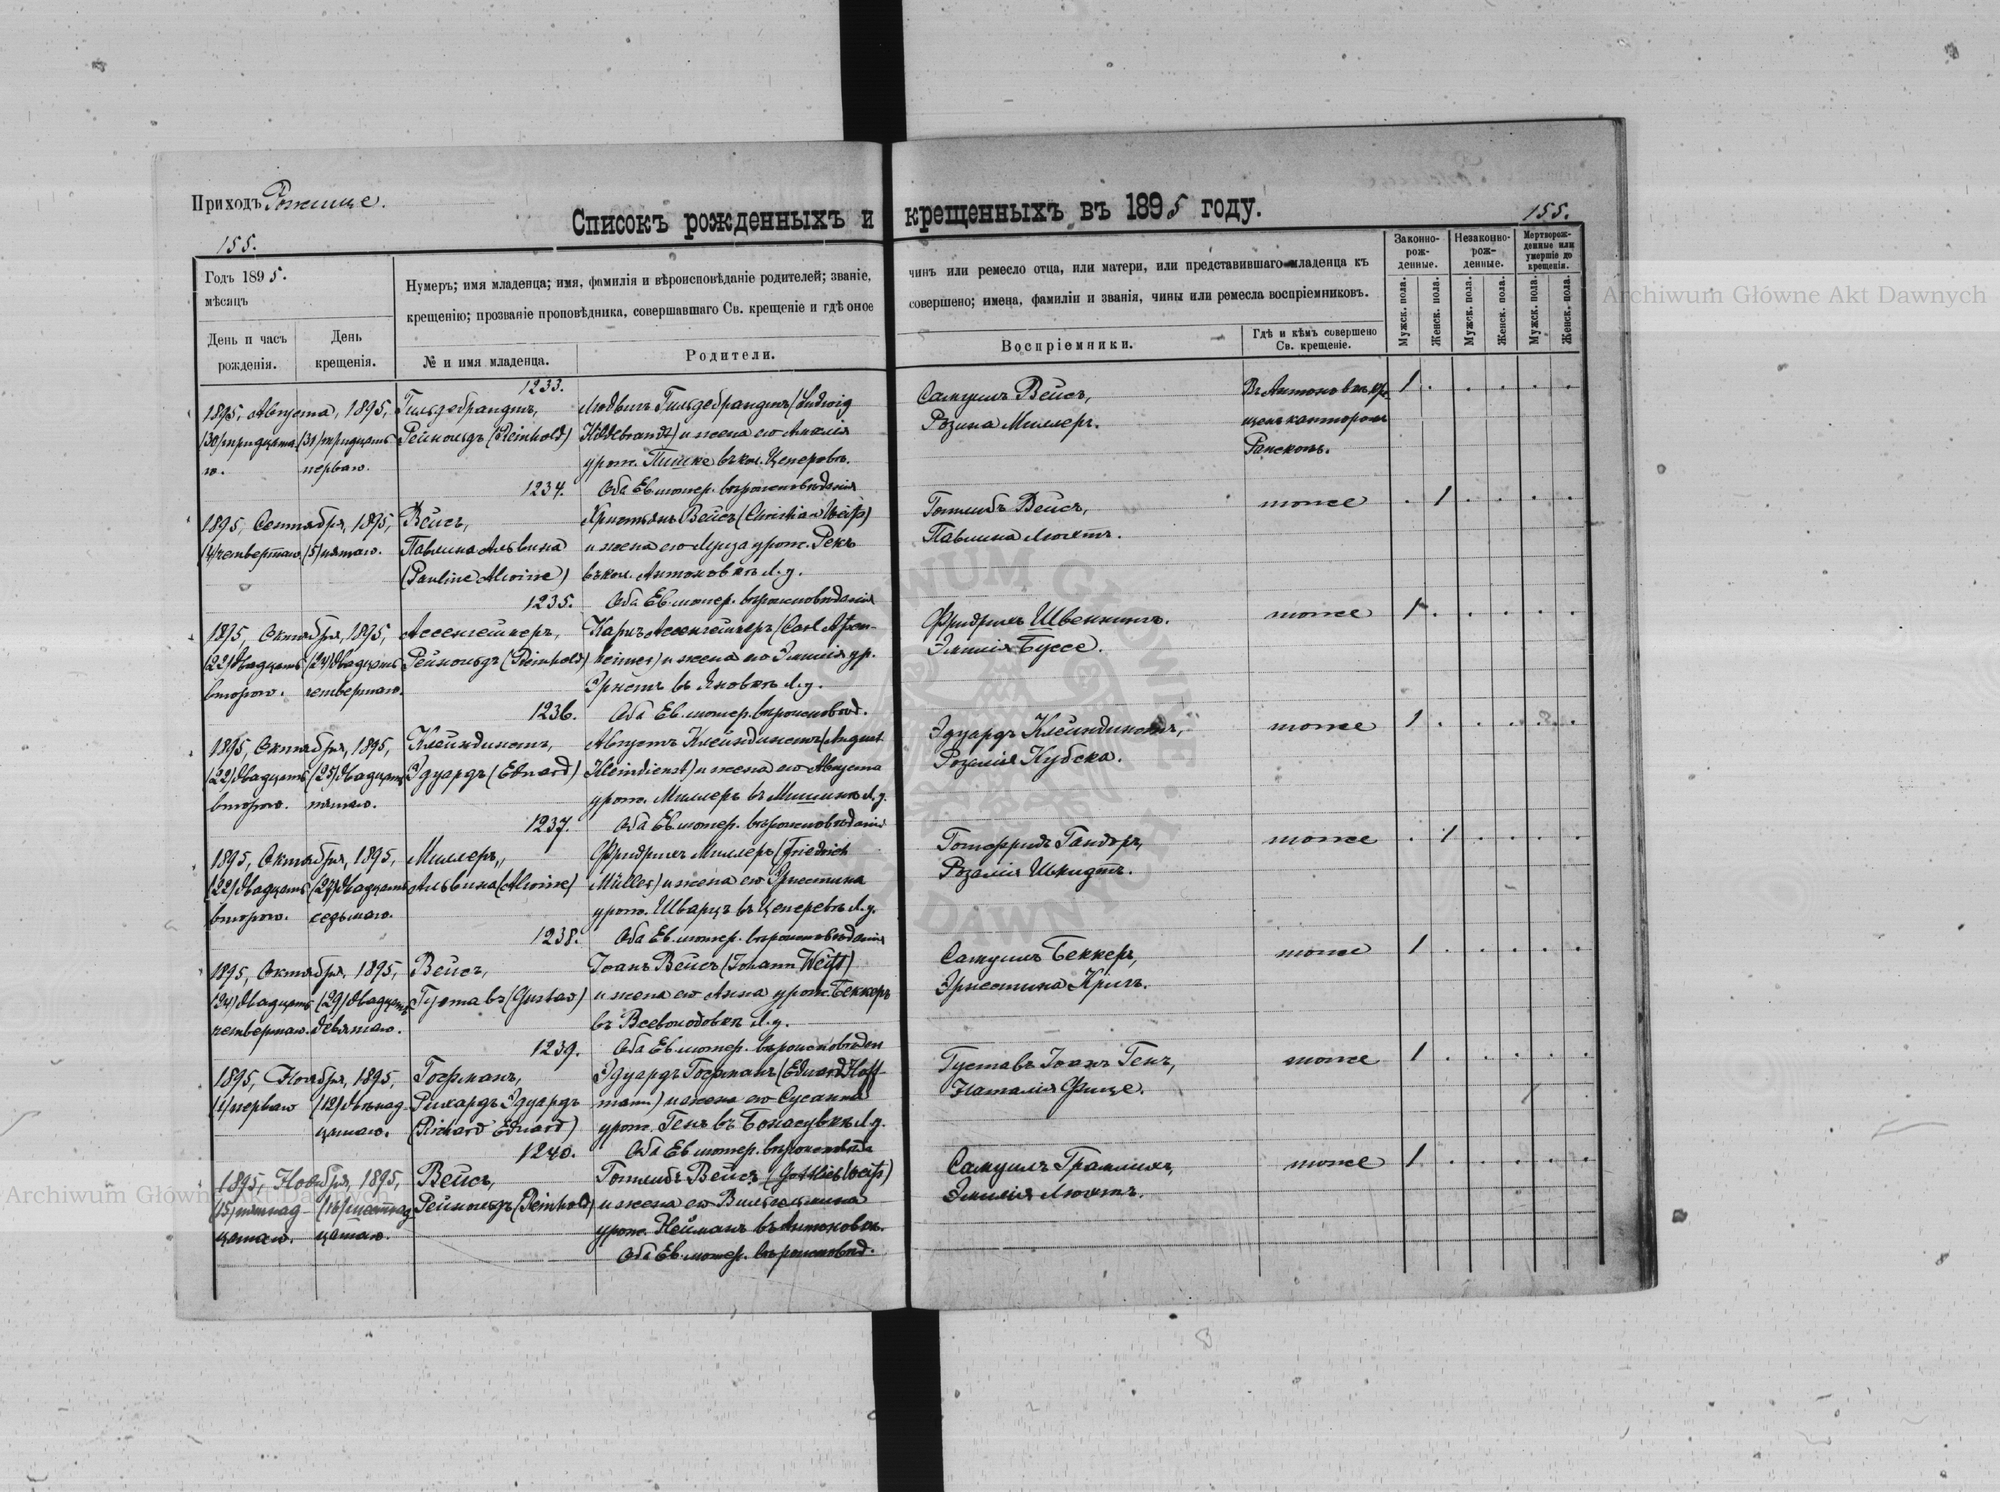 Приходъ Рожище.
Списокъ рожденныхъ и крещенныхъ въ 1895 году.
155.
155.
Годъ 1895.
мѣсяцъ
День и часъ рожденія.
День крещенія.
Нумеръ; имя младенца; имя, фамилія и вѣроисповѣданіе родителей; званіе, чинъ или ремесло отца, или матери, или представившаго младенца къ
крещенію; прозваніе проповѣдника, совершавшаго Св. крещеніе и гдѣ оное совершено; имена, фамиліи и званія, чины или ремесла воспріемниковъ.
№ и имя младенца.
Родители.
Воспріемники.
Гдѣ и кѣмъ совершено Св. крещеніе.
Законно-рож-денные.
Незаконно-рож-денные.
Мертворож-денные или умершіе до крещенія.
Мужск. пола.
Женск. пола.
Мужск. пола.
Женск. пола.
Мужск. пола
Женск. пола.
1233.
1895, Августа, 1895, Гильдебрандтъ, Людвигъ Гильдебрандтъ (Ludwig Самуилъ Вейсъ, Въ Антоновкѣ кре- 1
(30) тридцата- (31) тридцать Рейнольдъ (Reinhold) Hildebrandt) и жена его Амалія Розина Миллеръ. щенъ канторомъ
го. перваго. урож. въ кол. Цеперовъ.
1234. Оба Ев. лютер. вѣроисповѣданія
1895, Сентября, 1895, Вейсъ, Христіянъ Вейсъ (Christian Weiß) Готлибъ Вейсъ, тоже 1
(4) четвертаго (5) пятаго. Павлина Альвина и жена его Луиза урож. Рекъ Павлина Лютъ.
(Pauline Alvine) въ кол. Антоновкѣ Л. у.
1235. Оба Ев. лютер. вѣроисповѣданія
1895, Октября, 1895, Ассенгеймеръ, Карлъ Ассенгеймеръ (Carl Assen- Фридрихъ Швенкингъ. тоже 1
(22) двадцать (24) двадцать Рейнольдъ (Reinhold) heimer) и жена его Эмилія ур. Эмилія Буссе.
второго. четвертаго. Эрнстъ въ Яновкѣ Л. у.
1236. Оба Ев. лютер. вѣроисповѣд.
1895, Октября, 1895, Клейндинстъ, Августъ Клейндинстъ (August Эдуардъ Клейндинстъ, тоже 1
(22) двадцать (25) двадцать Эдуардъ (Eduard) Kleindienst) и жена его Августа Розалія Кубска.
второго. пятаго. урож. Миллеръ въ Л. у.
1237. Оба Ев. лютер. вѣроисповѣданія
1895, Октября, 1895, Миллеръ, Фридрихъ Миллеръ (Friedrich Готфридъ Гандеръ, тоже 1
(22) двадцать (27) двадцать Альвина (Alvine) Müller) и жена его Христина Розалія Шмидтъ.
второго. седьмаго. урож. Шварцъ въ Цеперовѣ Л. у.
1238. Оба Ев. лютер. вѣроисповѣданія
1895, Октября, 1895, Вейсъ, Іоанъ Вейсъ (Johann Weiß) Самуилъ Беккеръ, тоже 1
(24) двадцать (29) двадцать Густавъ (Gustav) и жена его Анна урож. Беккеръ Христина Кригъ.
четвертаго. девятаго. въ Всеволодовкѣ Л. у.
1239. Оба Ев. лютер. вѣроисповѣден
1895, Ноября, 1895, Гофманъ, Эдуардъ Гофманъ (Eduard Hoff- Густавъ Іоанъ Генъ, тоже 1
(1) перваго (12) двѣнад- Рихардъ Эдуардъ mann) и жена его Сусанна Наталія Фице.
цатаго. (Richard Eduard) урож. Генъ въ Л. у.
1240. Оба Ев. лютер. вѣроисповѣд
1895, Ноября, 1895, Вейсъ, Готлибъ Вейсъ (Gottlieb Weiß) Самуилъ Грамлихъ, тоже 1
(15) пятнад- (16) шестнад- Рейнольдъ (Reinhold) и жена его Вильгельмина Эмилія Лютъ.
цатаго. цатаго. урож. Нейманъ въ Антоновкѣ.
Оба Ев. лютер. вѣроисповѣд.
Archiwum Główne Akt Dawnych
Archiwum Główne Akt Dawnych
ARCHIWUM GŁÓWNE AKT DAWNYCH